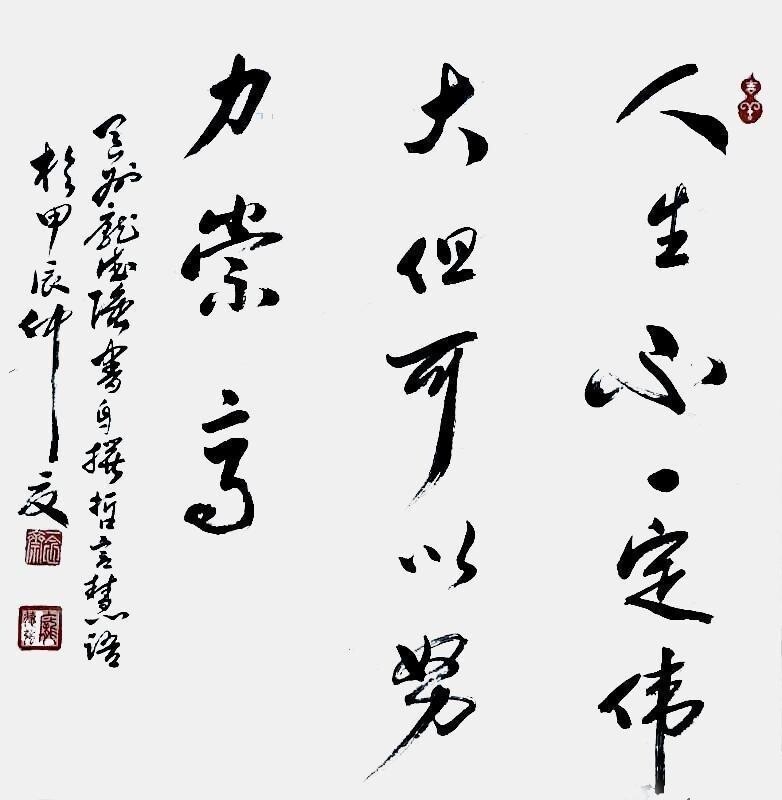 人生不一定伟
大但可以努
力崇高
書自撰哲言慧語
於甲辰仲夏